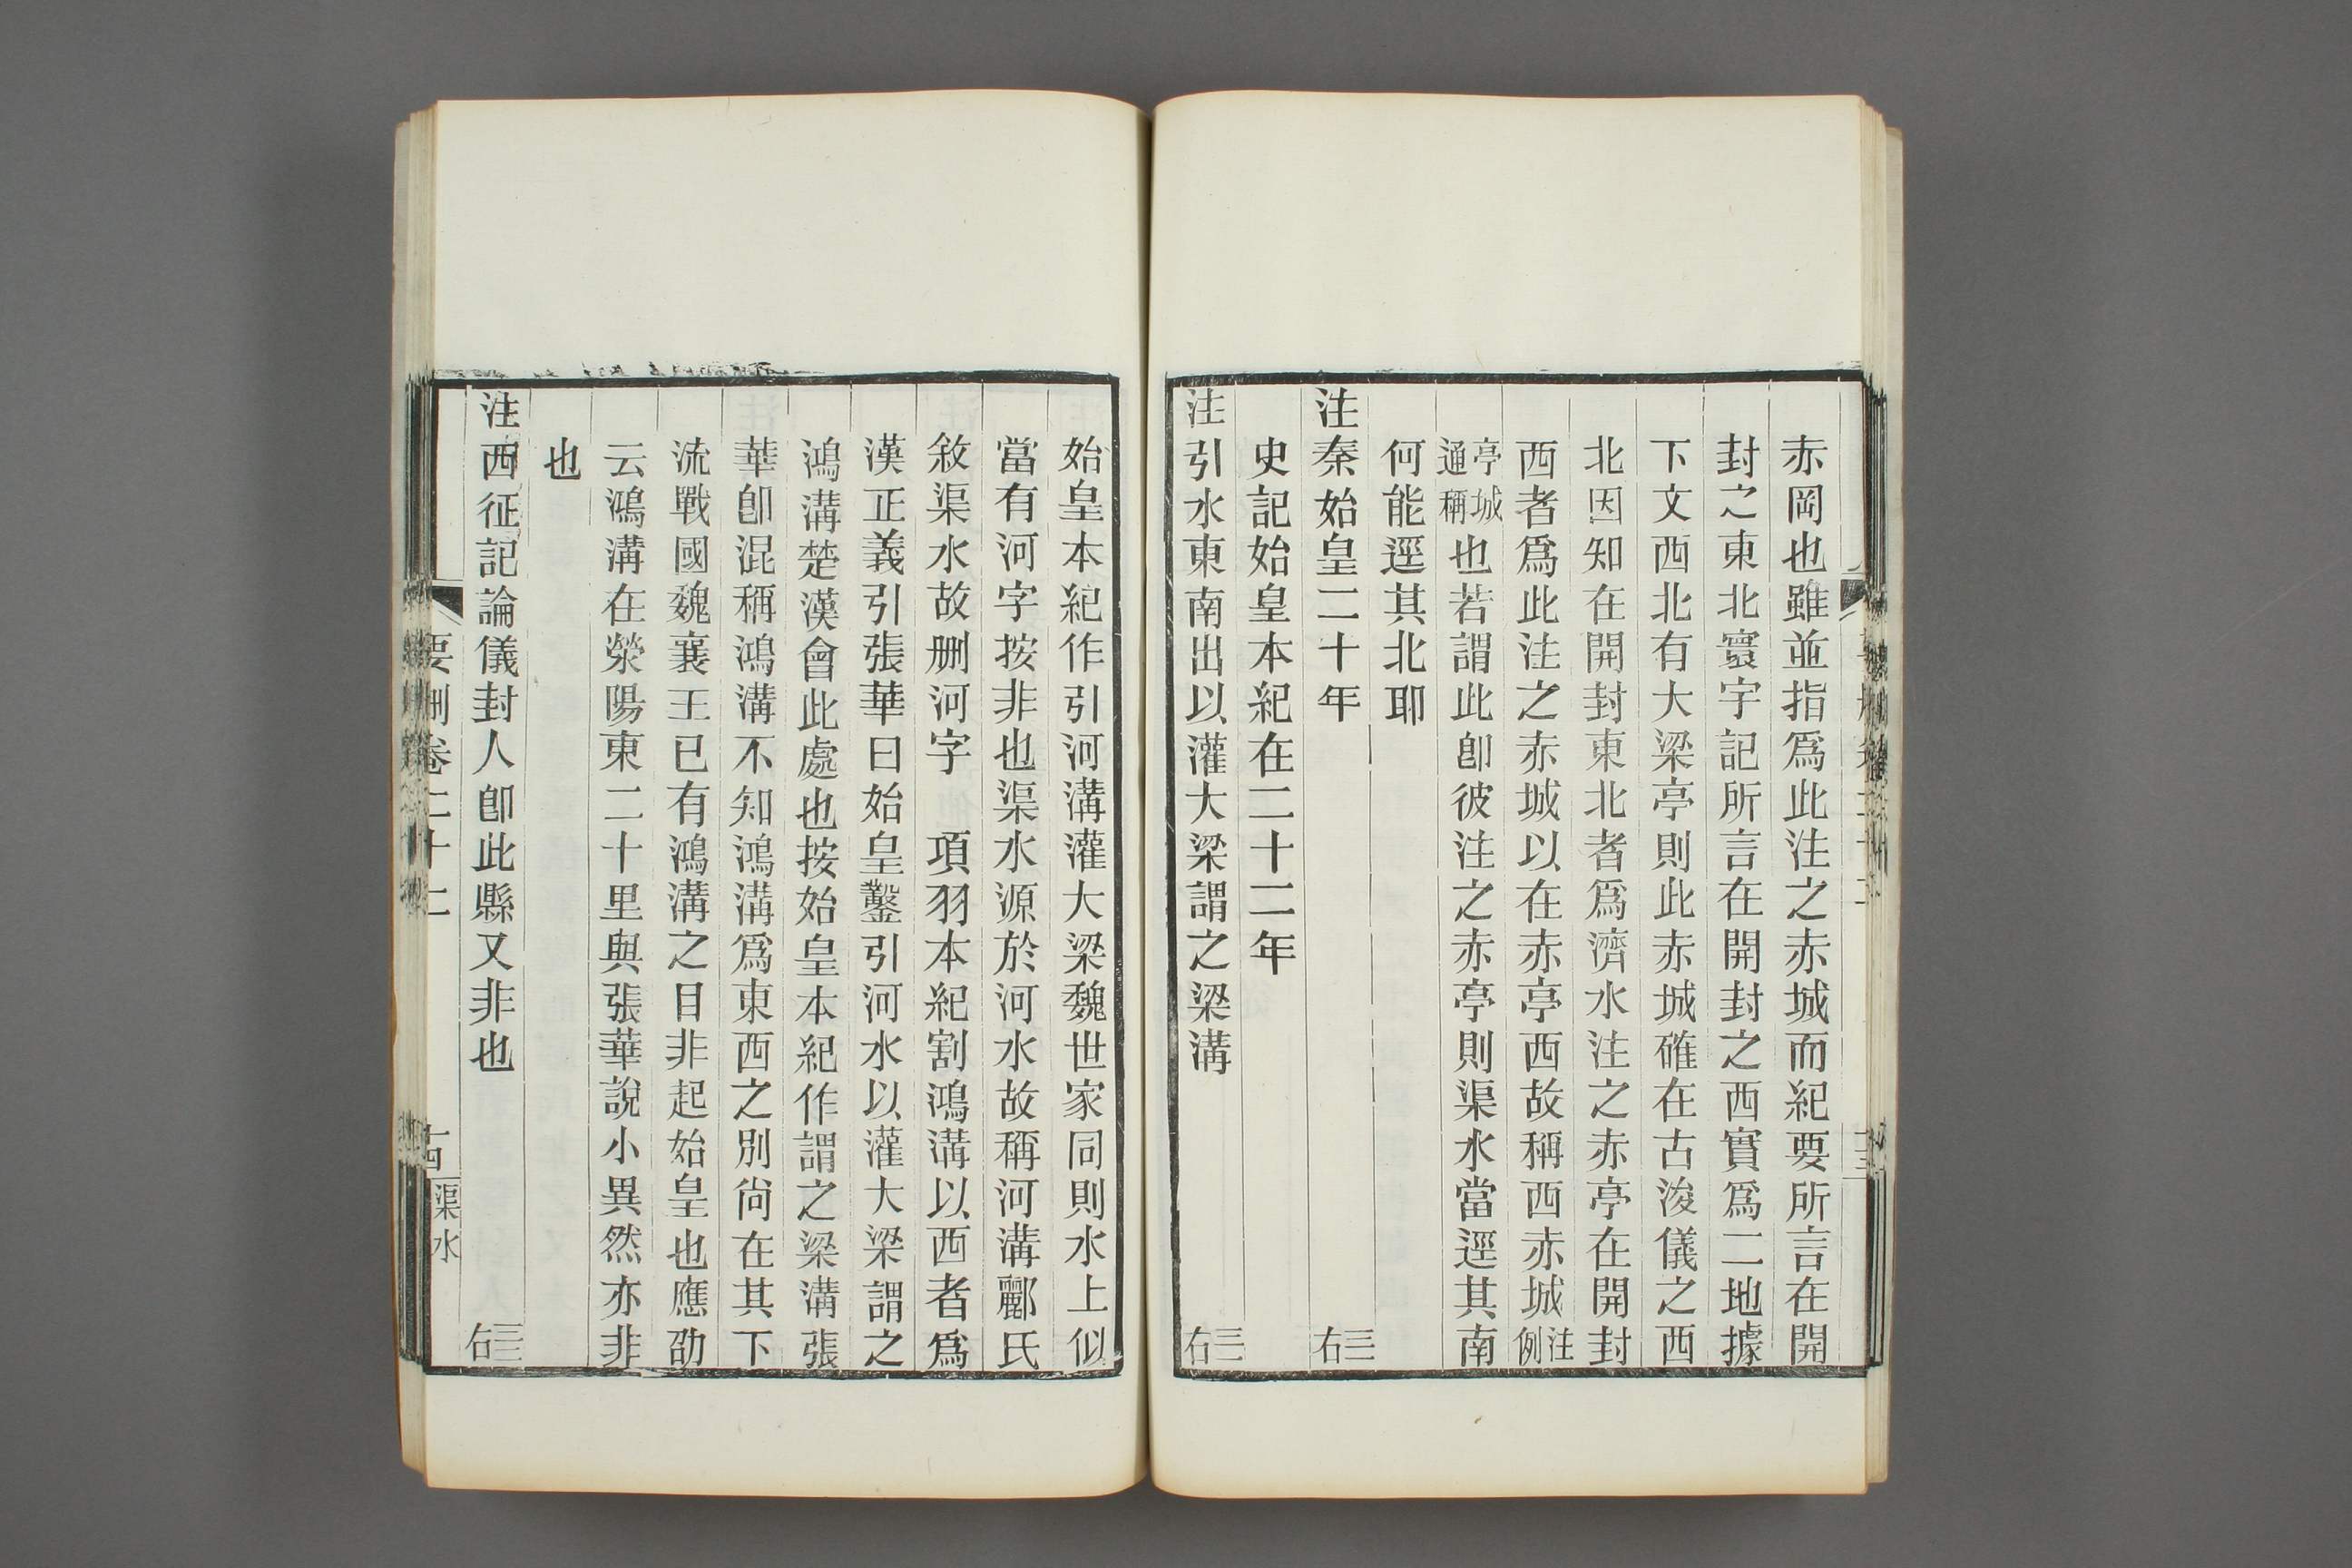 赤岡也雖並指爲此注之赤城而紀要所言在開
封之東北寰宇記所言在開封之西實爲二地據
下文西北有大梁亭則此赤城確在古浚儀之西
北因知在開封東北者爲濟水注之赤亭在開封
西者爲此注之赤城以在赤亭西故稱西赤城注例
亭城通稱也若謂此卽彼注之赤亭則渠水當逕其南
何能逕其北耶
注秦始皇二十年 三右
史記始皇本紀在二十二年
注引水東南出以灌大梁謂之梁溝 三右
始皇本紀作引河溝灌大梁魏世家同則水上似
當有河字按非也渠水源於河水故稱河溝酈氏
敘渠水故删河字 項羽本紀割鴻溝以西者爲
漢正義引張華曰始皇鑿引河水以灌大梁謂之
鴻溝楚漢會此處也按始皇本紀作謂之梁溝張
華卽混稱鴻溝不知鴻溝爲東西之別尙在其下
流戰國魏襄王已有鴻溝之目非起始皇也應劭
云鴻溝在滎陽東二十里與張華說小異然亦非
也
注西征記論儀封人卽此縣又非也 三右
要删卷二十二 十四 渠水